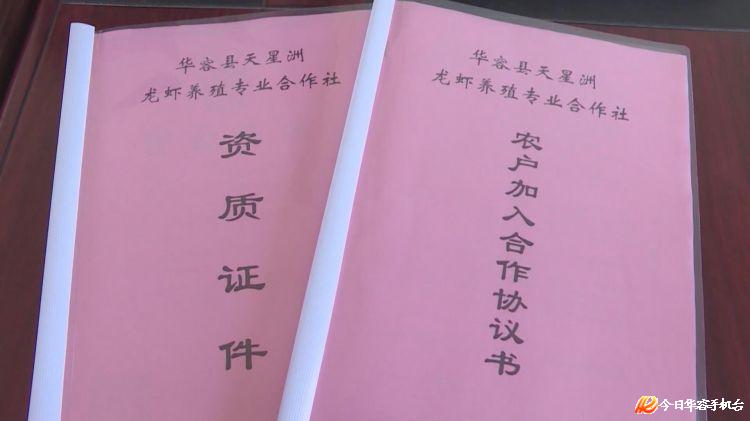 华容县天星洲
龙虾养殖专业合作社
资质证件
华容县天星洲
龙虾养殖专业合作社
农户加入合作协议书
今日华容手机台